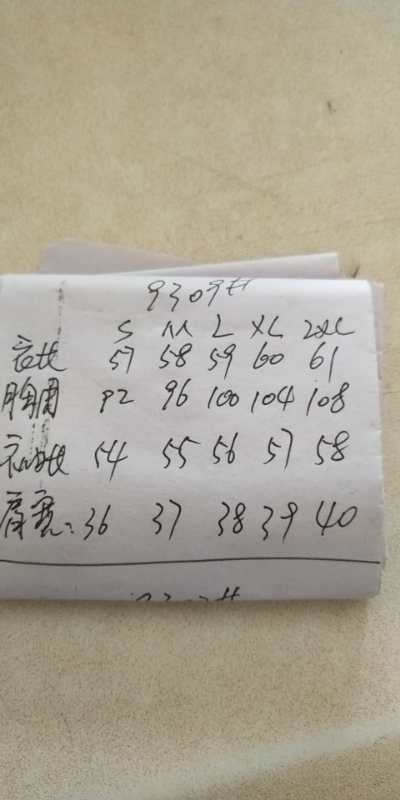 9309#
S M L XL 2XL
衣长 57 58 59 60 61
胸围 92 96 100 104 108
袖长 54 55 56 57 58
肩宽: 36 37 38 39 40